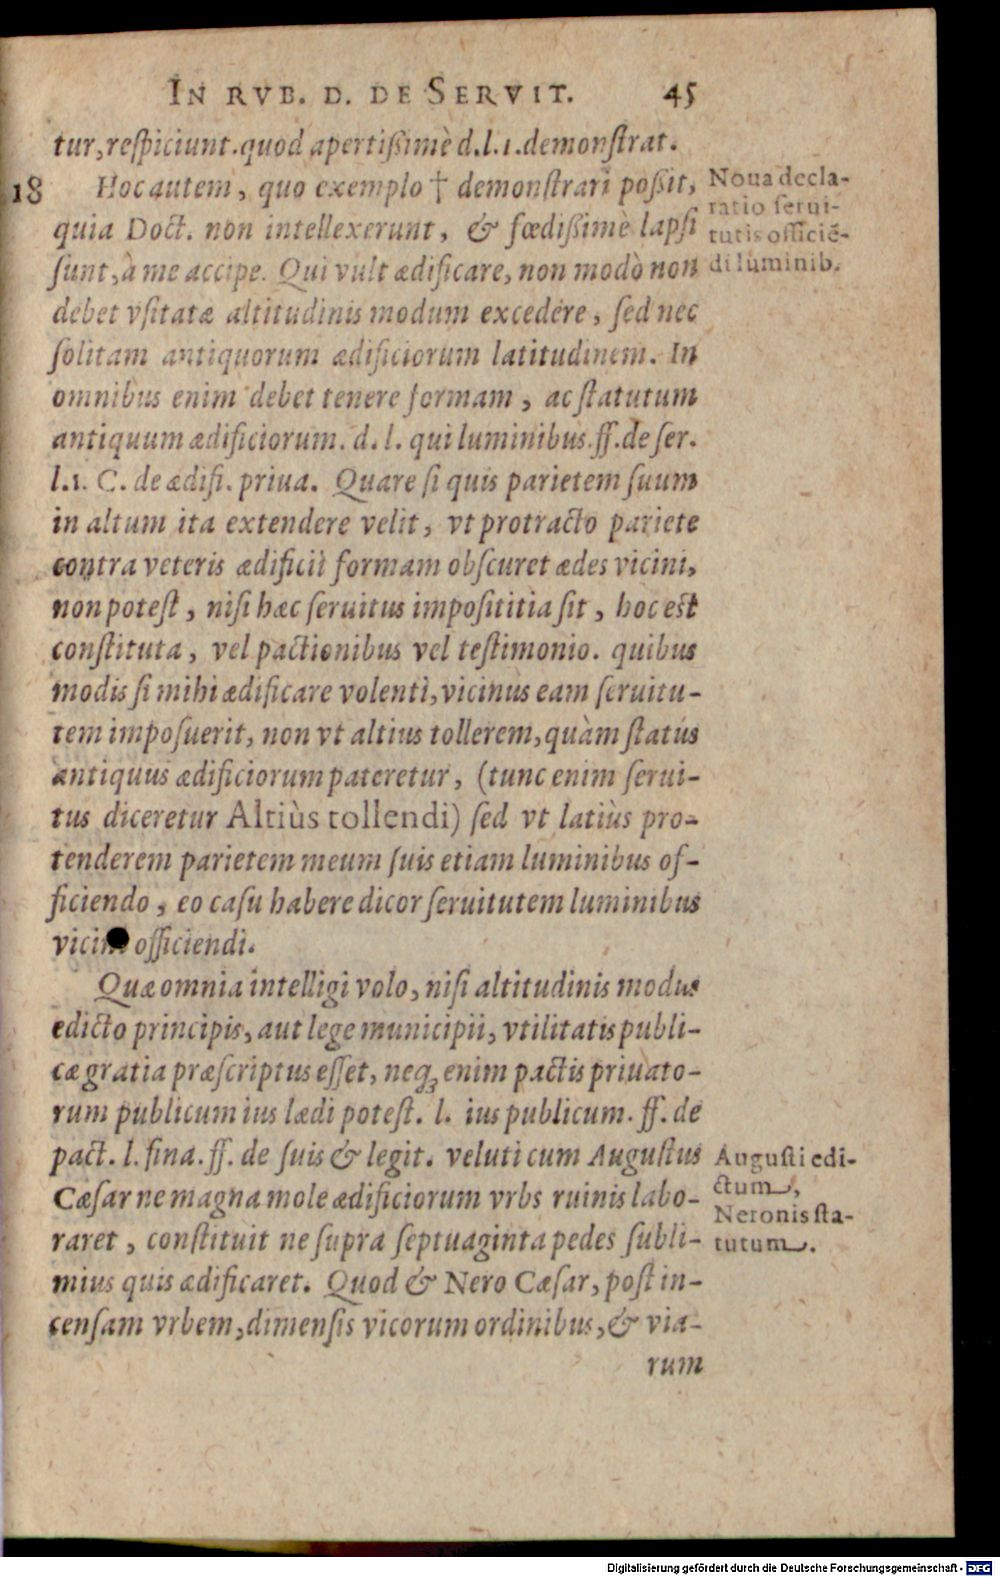 IN RVB. D. DE SERVIT. 45
tur, respiciunt. quod apertissimè d.l.1. demonstrat.
18 Hoc autem, quo exemplo † demonstrari possit,
quia Doct. non intellexerunt, & fœdissimè lapsi
sunt, à me accipe. Qui vult ædificare, non modò non
debet vsitatæ altitudinis modum excedere, sed nec
solitam antiquorum ædificiorum latitudinem. In
omnibus enim debet tenere formam, ac statutum
antiquum ædificiorum. d. l. qui luminibus. ff. de ser.
l.1. C. de ædifi. priua. Quare si quis parietem suum
in altum ita extendere velit, vt protracto pariete
contra veteris ædificii formam obscuret ædes vicini,
non potest, nisi hæc seruitus imposititia sit, hoc est
constituta, vel pactionibus vel testimonio. quibus
modis si mihi ædificare volenti, vicinus eam seruitu-
tem imposuerit, non vt altius tollerem, quàm status
antiquus ædificiorum pateretur, (tunc enim serui-
tus diceretur Altiùs tollendi) sed vt latiùs pro-
tenderem parietem meum suis etiam luminibus of-
ficiendo, eo casu habere dicor seruitutem luminibus
vicini officiendi.
Quæ omnia intelligi volo, nisi altitudinis modus
edicto principis, aut lege municipii, vtilitatis publi-
cæ gratia præscriptus esset, neq; enim pactis priuato-
rum publicum ius lædi potest. l. ius publicum. ff. de
pact. l. fina. ff. de suis & legit. veluti cum Augustus
Cæsar ne magna mole ædificiorum vrbs ruinis labo-
raret, constituit ne supra septuaginta pedes subli-
mius quis ædificaret. Quod & Nero Cæsar, post in-
censam vrbem, dimensis vicorum ordinibus, & via-
rum
Noua decla-
ratio serui-
tutis officiē-
di luminib.
Augusti edi-
ctum,
Neronis sta-
tutum.
Digitalisierung gefördert durch die Deutsche Forschungsgemeinschaft - DFG